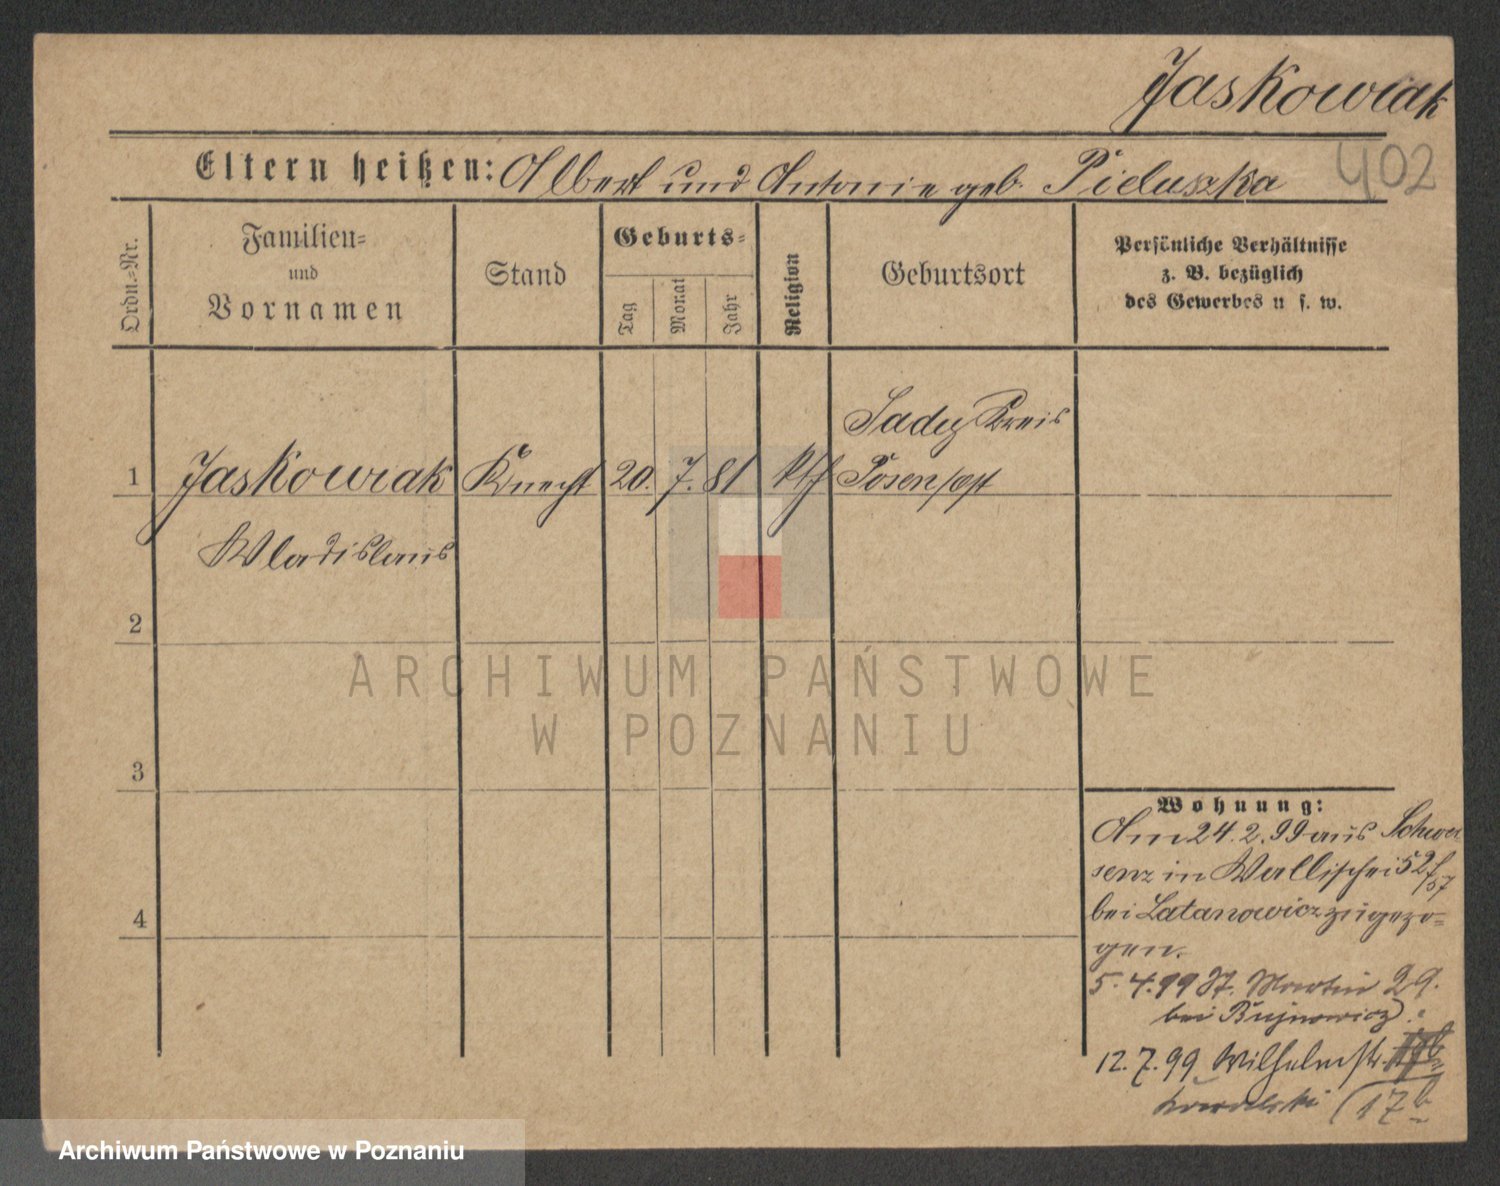 Jaskowiak
402
Eltern heißen: Albert und Antonie geb. Pieluszka
Ordn.-Nr.
Familien-
und
Vornamen
Stand
Geburts-
Tag
Monat
Jahr
Religion
Geburtsort
Persönliche Verhältnisse
z. B. bezüglich
des Gewerbes u. s. w.
Sady Kreis
1 Jaskowiak Knecht 20. 7. 81 kth Posen west
Wladislaus
2
3
4
Wohnung:
Am 24. 2. 99 aus Schwer
senz in Wallischei 52/57
bei Latanowicz zugezo=
gen.
5. 4. 99 St. Martin 29.
bei Bujnowicz.
12. 7. 99 Wilhelmstr.
Kowalski 17b
ARCHIWUM PAŃSTWOWE
W POZNANIU
Archiwum Państwowe w Poznaniu